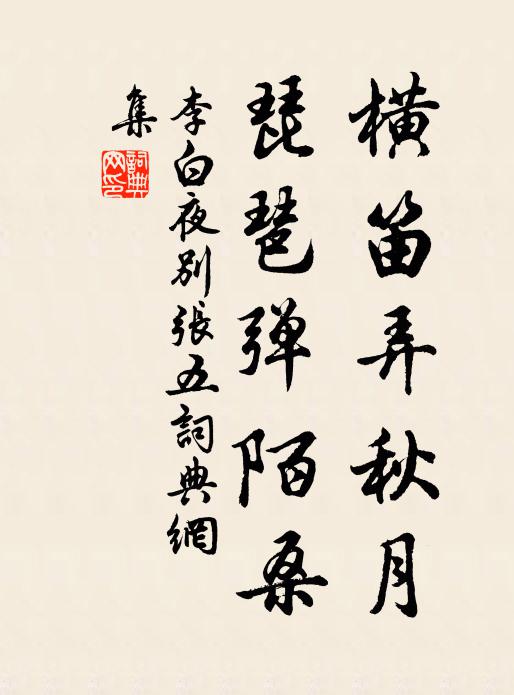 橫笛弄秋月
琵琶弹陌桑
李白夜别張五詞典網
集
詞典
网印